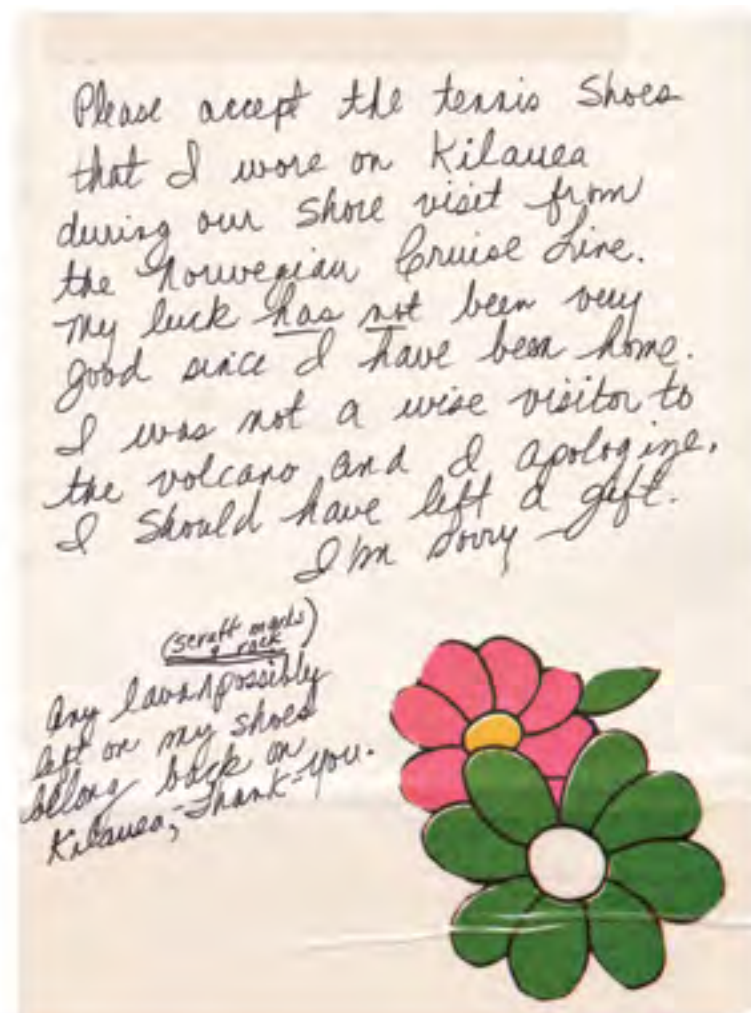 Please accept the tennis Shoes
that I wore on Kilauea
during our Shore visit from
the Norwegian Cruise Line.
My luck has not been very
good since I have been home.
I was not a wise visitor to
the volcano and I apologize.
I Should have left a gift.
I'm sorry
(scruff marks
& rock)
Any lava possibly
left on my shoes
belong back on
Kilauea, Thank-you.